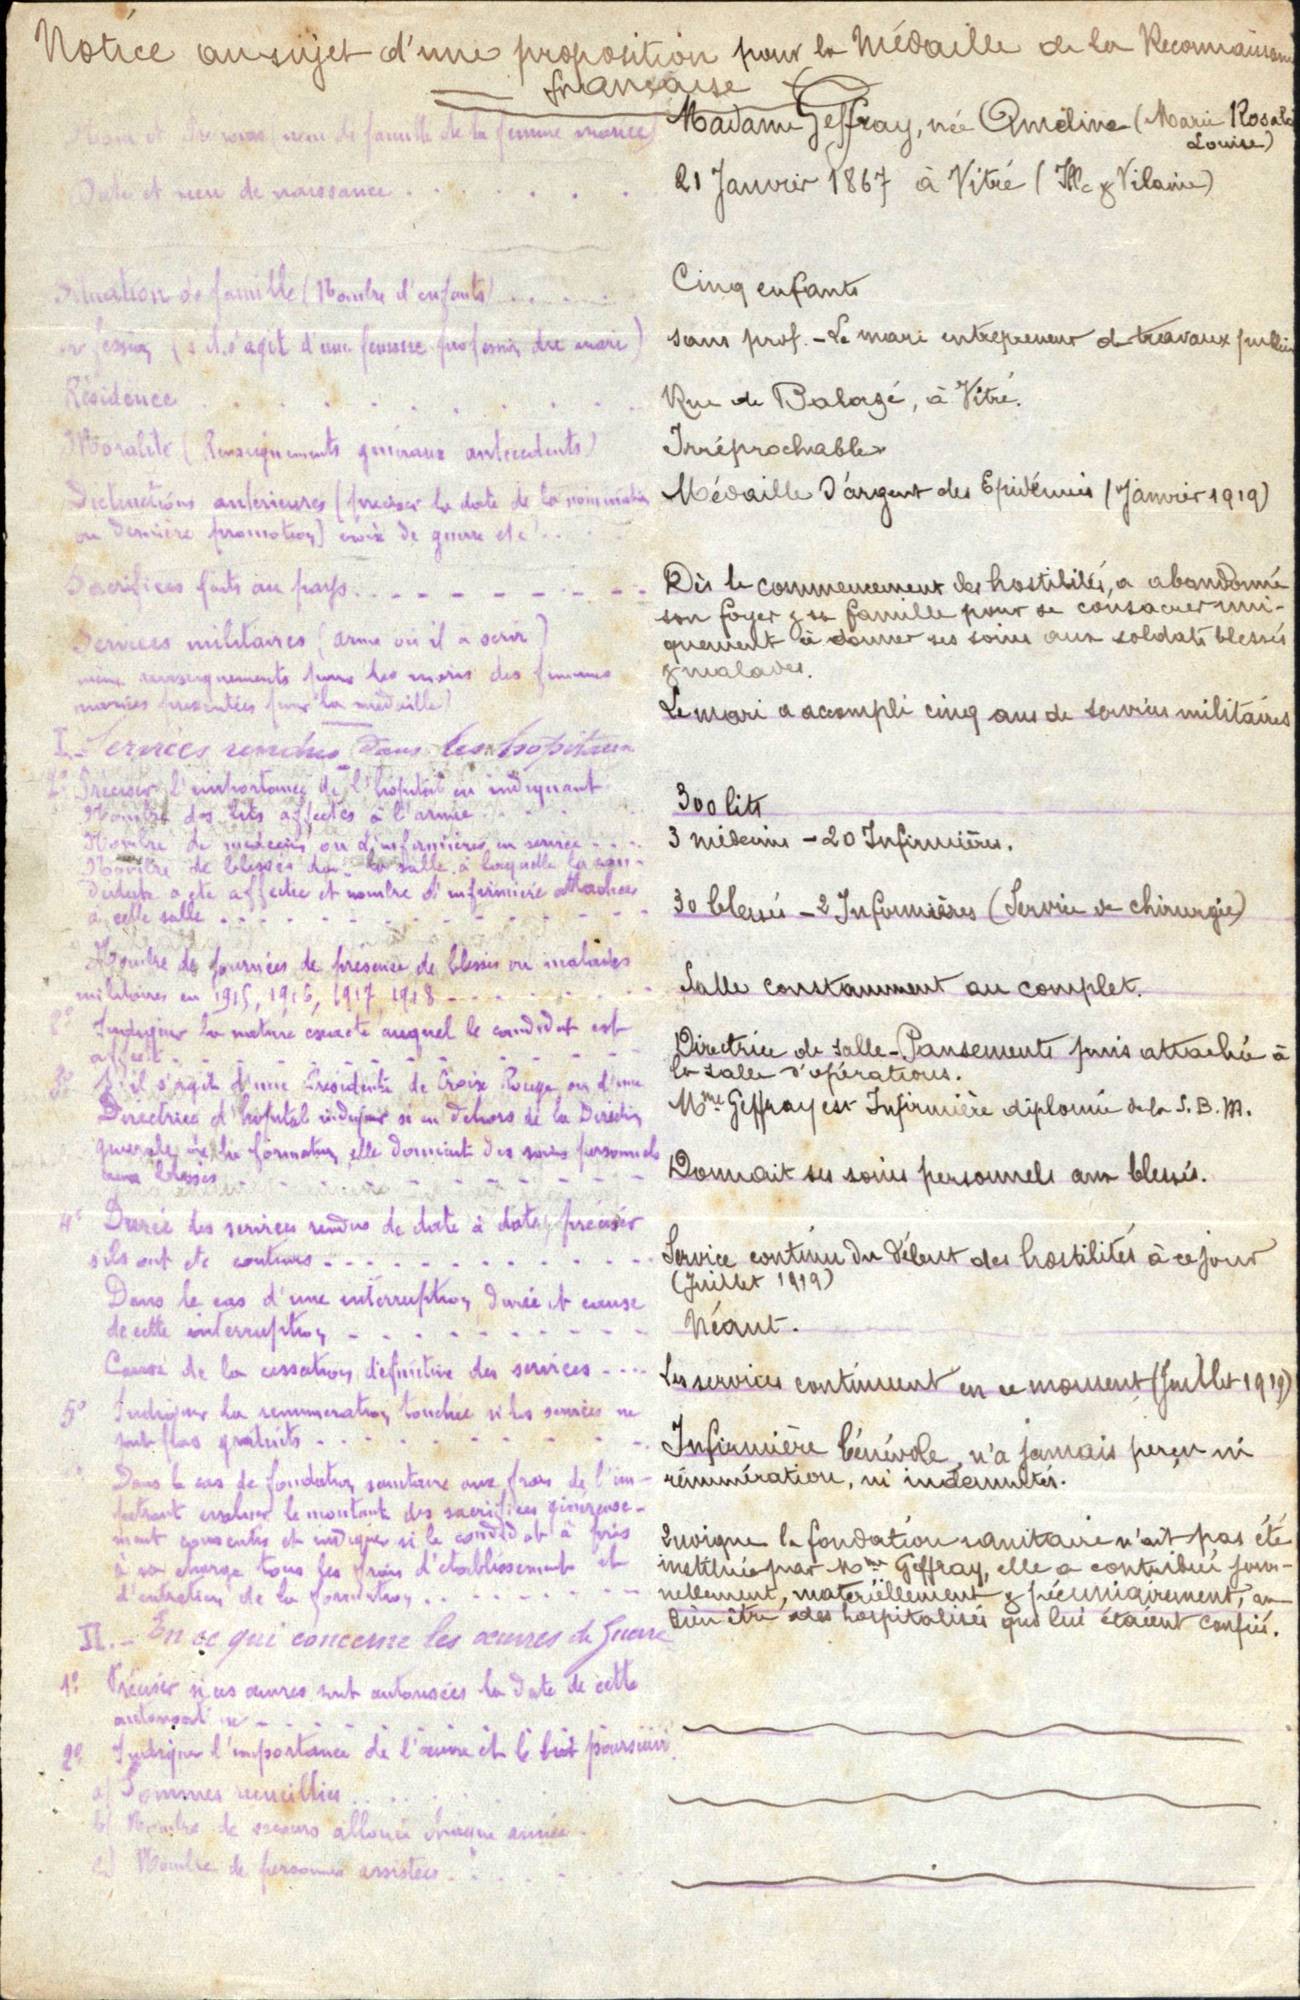 Notice au sujet d'une proposition pour la Médaille de la Reconnaissance
française
Nom et Prénoms (nom de famille de la femme mariée)
Madame Geffray, née Améline (Marie Rosalie
Louise)
Date et lieu de naissance . . . . . .
21 Janvier 1867 à Vitré (Ille & Vilaine)
Situation de famille (Nombre d'enfants) . . . . .
Cinq enfants
Profession (s'il s'agit d'une femme profession du mari)
sans prof. - Le mari entrepreneur de travaux publics
Résidence . . . . . . . .
Rue de Balazé, à Vitré.
Moralité (Renseignements généraux antécédents)
Irréprochable
Distinctions antérieures (préciser la date de la nomination
ou dernière promotion) croix de guerre etc . . .
Médaille d'argent des Epidémies (Janvier 1919)
Sacrifices faits au pays . . - - - - - - - -
Dès le commencement des hostilités, a abandonné
son foyer & sa famille pour se consacrer uni-
quement à donner ses soins aux soldats blessés
& malades.
Services militaires (arme où il a servi)
même renseignements pour les maris des femmes
mariées présentées pour la médaille)
Le mari a accompli cinq ans de services militaires
I. - Services rendus dans les hopitaux
1° Préciser l'importance de l'hopital en indiquant
Nombre des lits affectés à l'armée . . . . .
300 lits
Nombre de médecins ou d'infirmières en service - - -
3 médecins - 20 Infirmières.
Nombre de blessés dans la salle à laquelle la can-
didate a été affectée et nombre d'infirmière attachées
à cette salle . . - - - - - - - - -
30 blessés - 2 Infirmières (Service de chirurgie)
Nombre de journées de présence de blessés ou malades
militaires en 1915, 1916, 1917, 1918 - - - - - - -
Salle constamment au complet.
2° Indiquer la nature exacte auquel le candidat est
affecté - - - - - - - - - - -
Directrice de salle - Pansements puis attachée à
la salle d'opérations.
3° S'il s'agit d'une Présidente de Croix Rouge ou d'une
Directrice d'hopital indiquer si en dehors de la Direction
générale de la formation, elle donnait des soins personnels
aux blessés - - - - - - - - - -
Mme Geffray est Infirmière diplomée de la S. B. M.
Donnait ses soins personnels aux blessés.
4° Durée des services rendus de date à date, préciser
s'ils ont été continus - - - - - - - - - - -
Service continu du début des hostilités à ce jour
(Juillet 1919)
Dans le cas d'une interruption, durée et cause
de cette interruption - - - - - - - - -
Néant.
Cause de la cessation définitive des services - - - -
Les services continuent en ce moment (Juillet 1919)
5° Indiquer la rémunération touchée si les services ne
sont pas gratuits - - - - - - - - - -
Infirmière bénévole, n'a jamais perçu ni
rémunération, ni indemnités.
Dans le cas de fondation sanitaire aux frais de l'im-
pétrant évaluer le montant des sacrifices généreuse-
ment consentis et indiquer si le candidat a pris
à sa charge tous les frais d'établissement et
d'entretien de la formation . . - - - - - -
Quoique la fondation sanitaire n'ait pas été
instituée par Mme Geffray, elle a contribué person-
nellement, matériellement & pécuniairement, au
bien être des hospitalisés qui lui étaient confiés.
II. - En ce qui concerne les œuvres de Guerre
1° Préciser si ces œuvres sont autorisées la date de cette
autorisation - - - -
2° Indiquer l'importance de l'œuvre et le but poursuivi.
a) Sommes recueillies . . . . .
b) Nombre de secours alloués chaque année .
c) Nombre de personnes assistées . . . . .